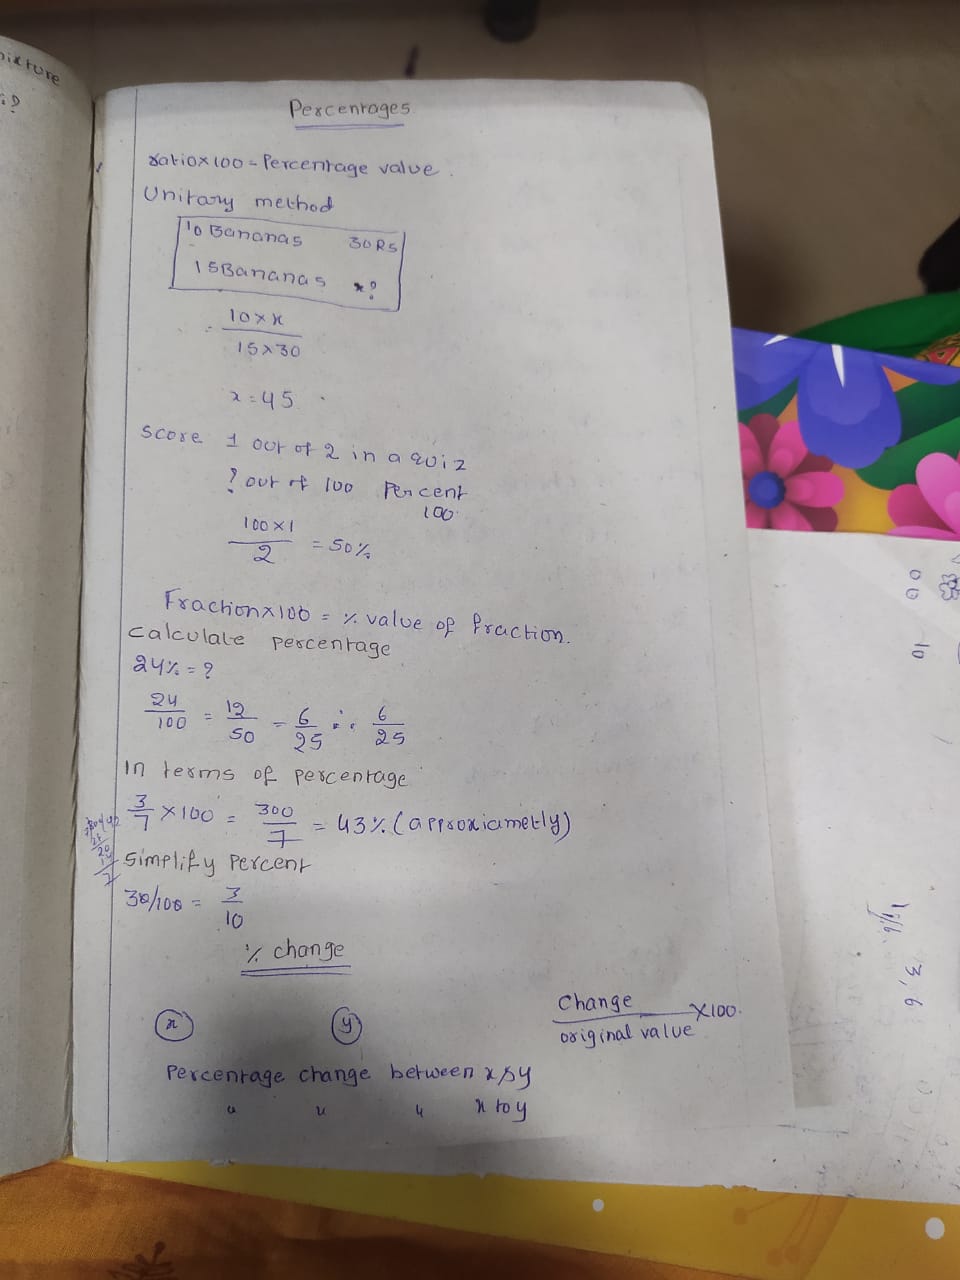 mixture
?
Percentages
ratio×100 = Percentage value.
Unitary method
10 Bananas 30 RS
15 Bananas x?
10×x
15×30
x = 45
Score 1 out of 2 in a quiz
? out of 100 Percent
100
100×1
2
= 50%
Fraction×100 = % value of fraction.
calculate percentage
24% = ?
24/100 = 12/50 = 6/25 ∴ 6/25
In terms of percentage
3/7 × 100 = 300/7 = 43% (approxiametly)
Simplify Percent
30/100 = 3/10
% change
x y
Change/original value ×100.
Percentage change between x & y
" " " x to y
00
10
3,6